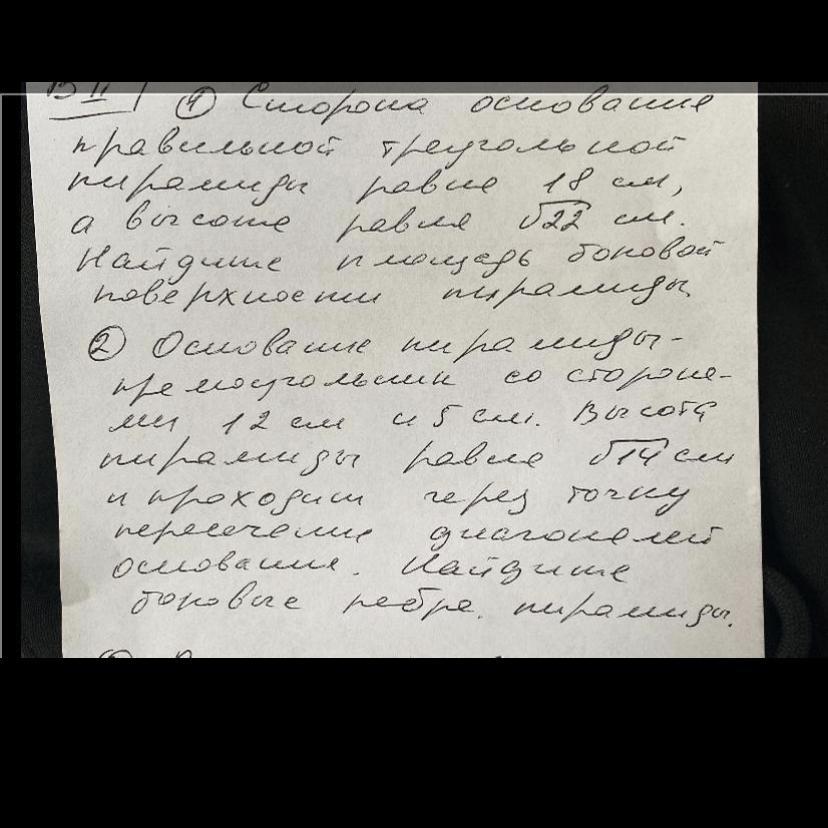 В II
① Сторона основание
правильной треугольной
пирамиды равна 18 см,
а высота равна √22 см.
Найдите площадь боковой
поверхности пирамиды
② Основание пирамиды-
прямоугольник со сторона-
ми 12 см и 5 см. Высота
пирамиды равна √14 см
и проходит через точку
пересечения диагоналей
основания. Найдите
боковые ребра. пирамиды.